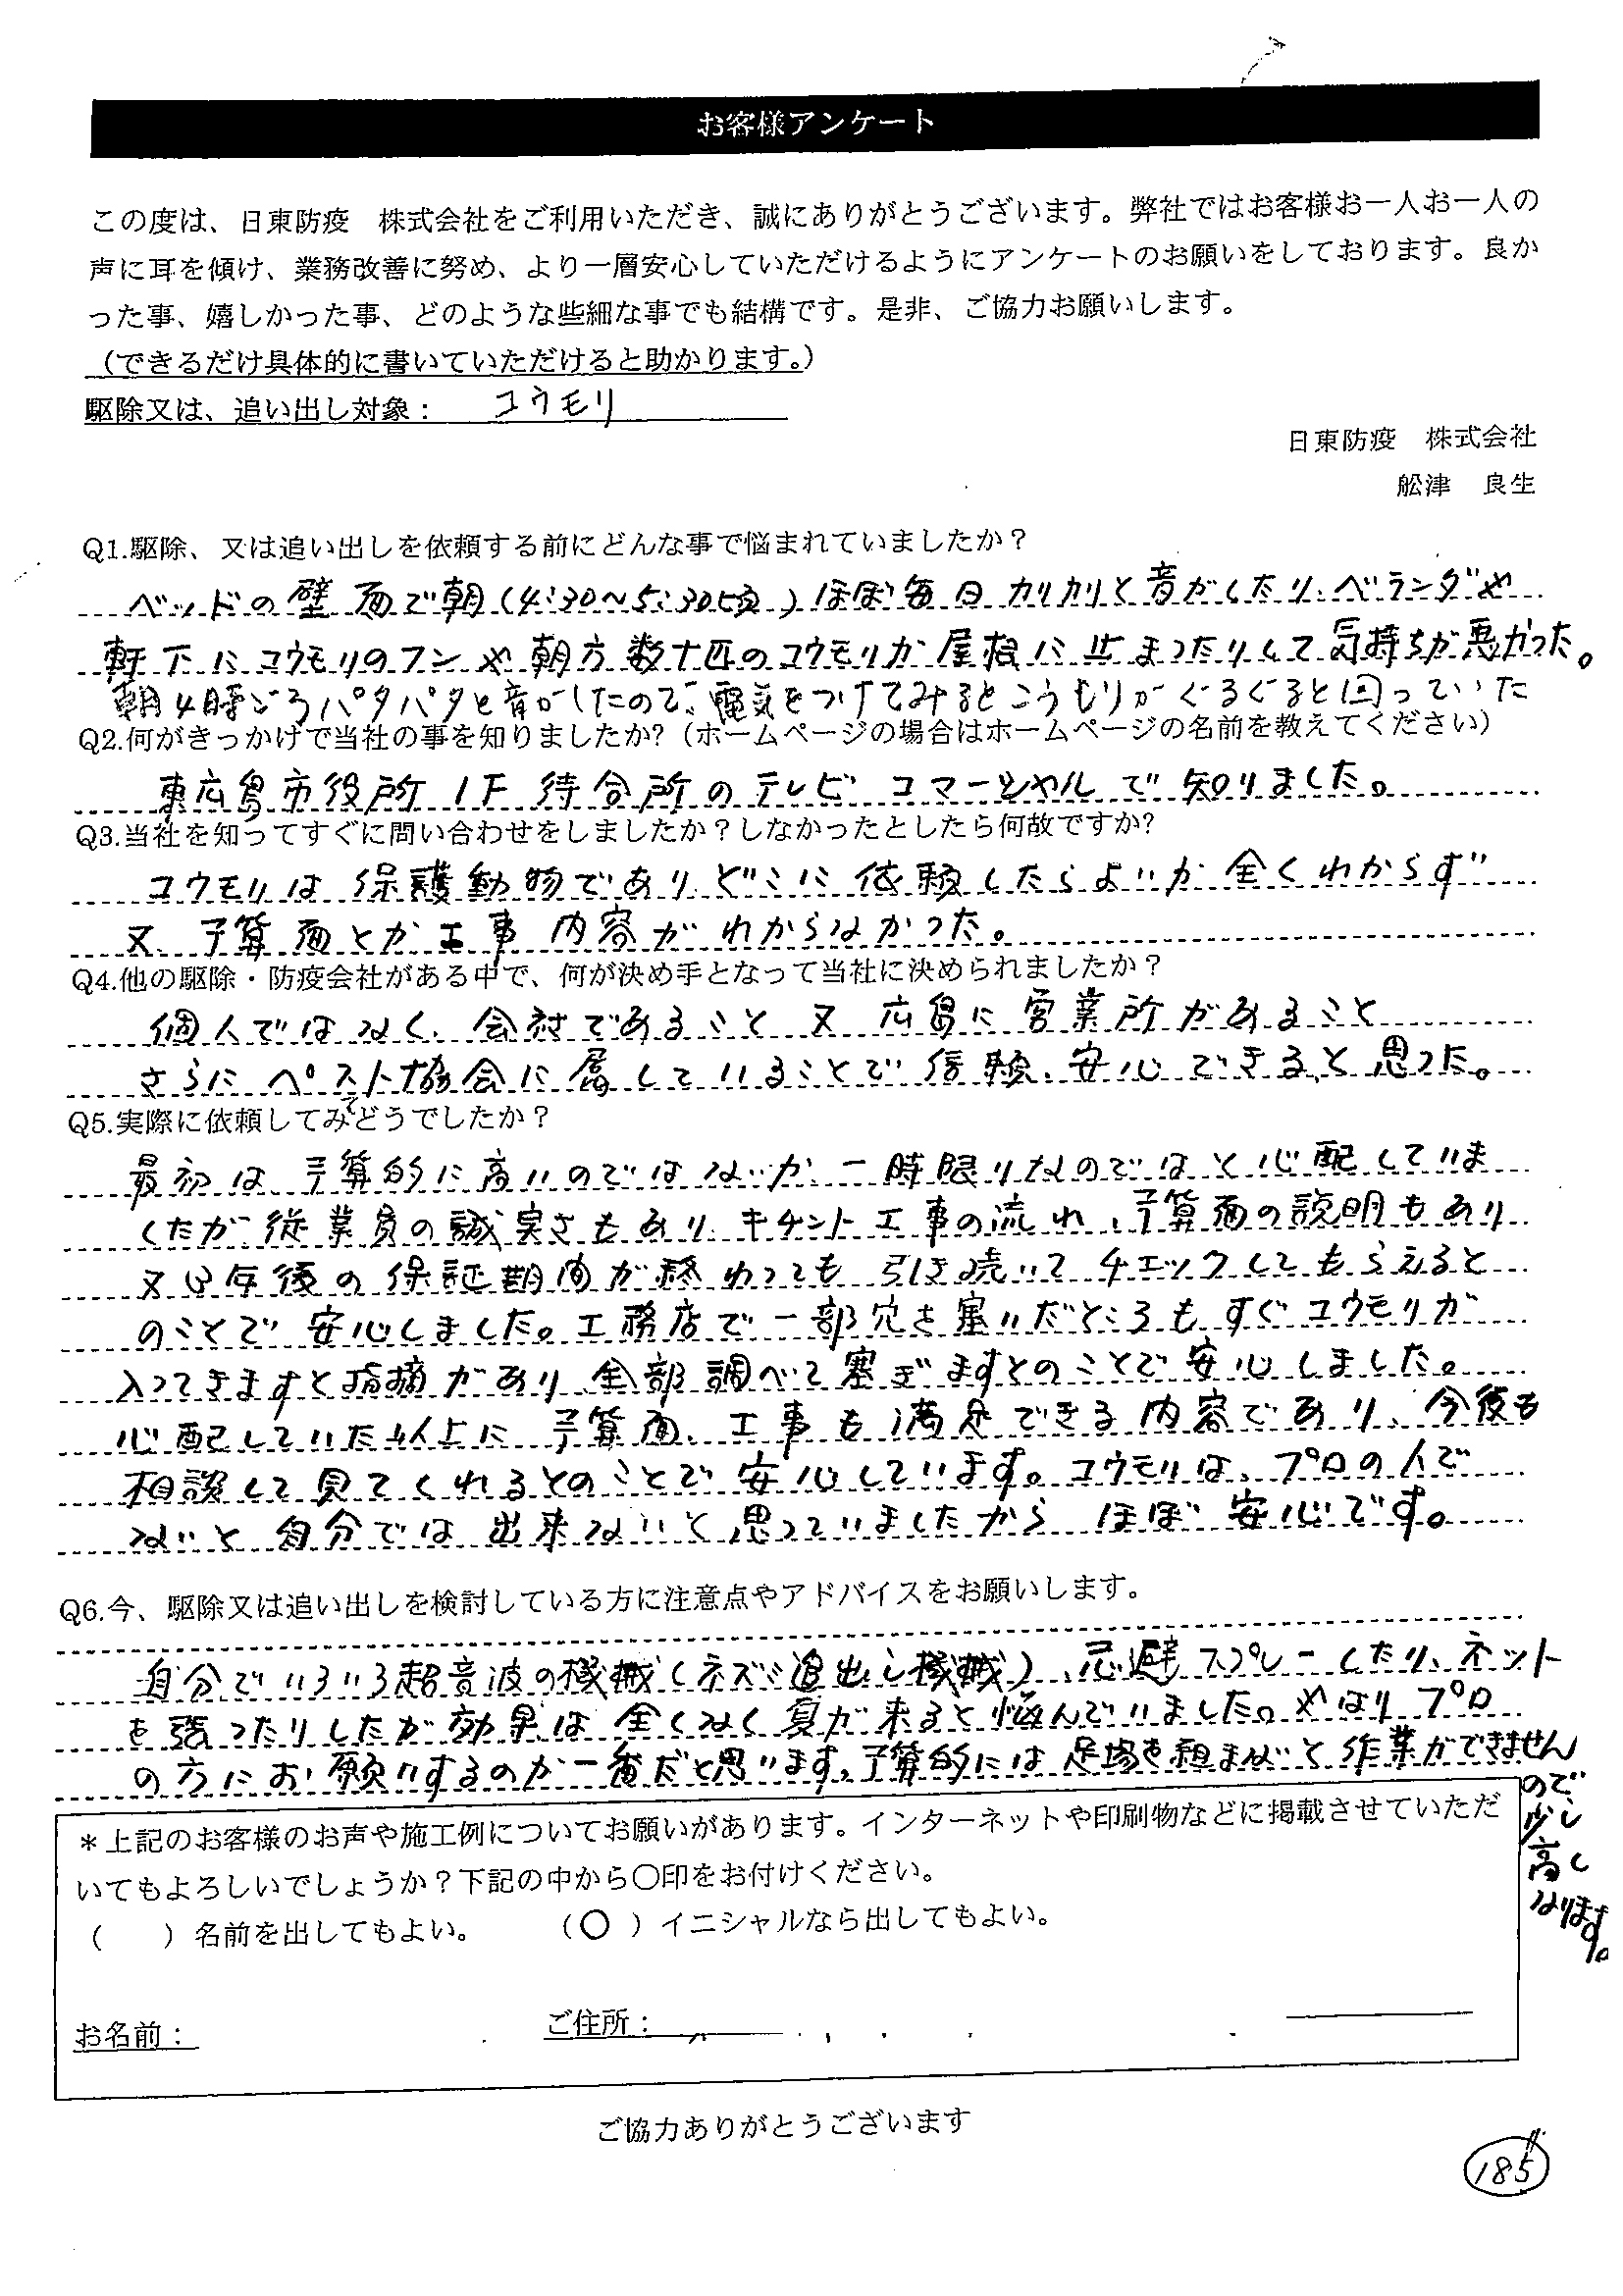 お客様アンケート
この度は、日東防疫　株式会社をご利用いただき、誠にありがとうございます。弊社ではお客様お一人お一人の
声に耳を傾け、業務改善に努め、より一層安心していただけるようにアンケートのお願いをしております。良か
った事、嬉しかった事、どのような些細な事でも結構です。是非、ご協力お願いします。
（できるだけ具体的に書いていただけると助かります。）
駆除又は、追い出し対象： コウモリ
日東防疫　株式会社
舩津　良生
Q1.駆除、又は追い出しを依頼する前にどんな事で悩まれていましたか？
ベッドの壁面で朝(4:30～5:30頃)ほぼ毎日カリカリと音がしたり、ベランダや
軒下にコウモリのフンや朝方数十匹のコウモリが屋根に止まったりして気持ちが悪かった。
朝4時ごろパタパタと音がしたので、電気をつけてみるとこうもりがぐるぐると回っていた
Q2.何がきっかけで当社の事を知りましたか?（ホームページの場合はホームページの名前を教えてください）
東広島市役所1F待合所のテレビコマーシャルで知りました。
Q3.当社を知ってすぐに問い合わせをしましたか？しなかったとしたら何故ですか?
コウモリは保護動物でありどこに依頼したらよいか全くわからず
又、予算面とか工事内容がわからなかった。
Q4.他の駆除・防疫会社がある中で、何が決め手となって当社に決められましたか？
個人ではなく、会社であること又広島に営業所があること
さらにペスト協会に属していることで信頼、安心できると思った。
Q5.実際に依頼してみてどうでしたか？
最初は予算的に高いのではないか、一時限りなのではと心配していま
したが従業員の誠実さもあり、キチント工事の流れ、予算面の説明もあり
又3年後の保証期間が終わっても引き続いてチェックしてもらえると
のことで安心しました。工務店で一部穴を塞いだところもすぐコウモリが
入ってきますと指摘があり、全部調べて塞ぎますとのことで安心しました。
心配していた以上に予算面、工事も満足できる内容であり、今後も
相談して見てくれるとのことで安心しています。コウモリは、プロの人で
ないと自分では出来ないと思っていましたから ほぼ安心です。
Q6.今、駆除又は追い出しを検討している方に注意点やアドバイスをお願いします。
自分でいろいろ超音波の機械(ネズミ追出し機械)、忌避スプレーしたり、ネット
を張ったりしたが効果は全くなく夏が来ると悩んでいました。やはりプロ
の方にお願いするのが一番だと思います。予算的には足場を組まないと作業ができません
ので
少し
高く
なります。
＊上記のお客様のお声や施工例についてお願いがあります。インターネットや印刷物などに掲載させていただ
いてもよろしいでしょうか？下記の中から〇印をお付けください。
（　　）名前を出してもよい。　　（〇）イニシャルなら出してもよい。
お名前：　　ご住所：
ご協力ありがとうございます
185